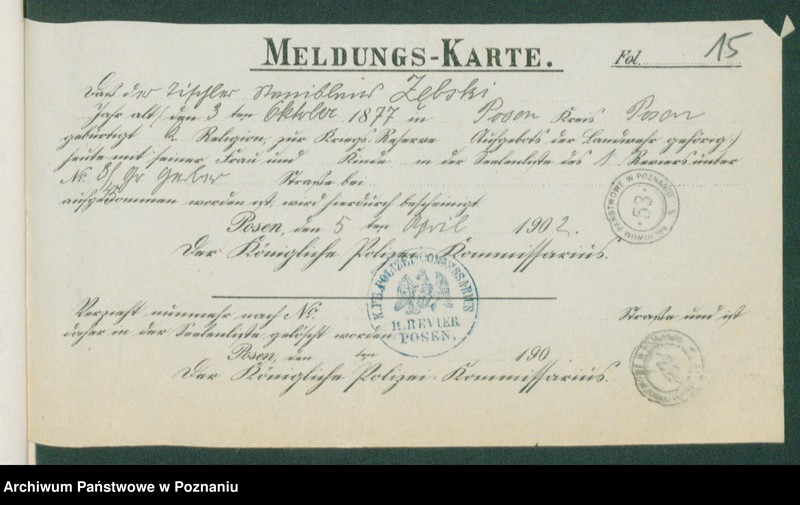 MELDUNGS-KARTE.
Fol. 15
Daß der Tischler Stanislaus Zębski
Jahr alt/den 3 ten Oktober 1877 in Posen Kreis Posen
gebürtigt Religion, zur Kriegs-Reserve Aufgebots der Landwehr gehörig/
heute mit seiner Frau und Kinde in der Seelenliste des 1 Reviers unter
No Gerber Straße bei
aufgenommen worden ist, wird hierdurch bescheinigt.
Posen, den 5 ten April 1902.
Der Königliche Polizei-Kommissarius.
ARCHIWUM PAŃSTWOWE W POZNANIU
53
KGL. POLIZEI-COMMISSARIUS
II. REVIER
POSEN.
Verzieht nunmehr nach No. Straße und ist
daher in der Seelenliste gelöscht worden.
Posen, den ten 190
Der Königliche Polizei-Kommissarius.
Archiwum Państwowe w Poznaniu